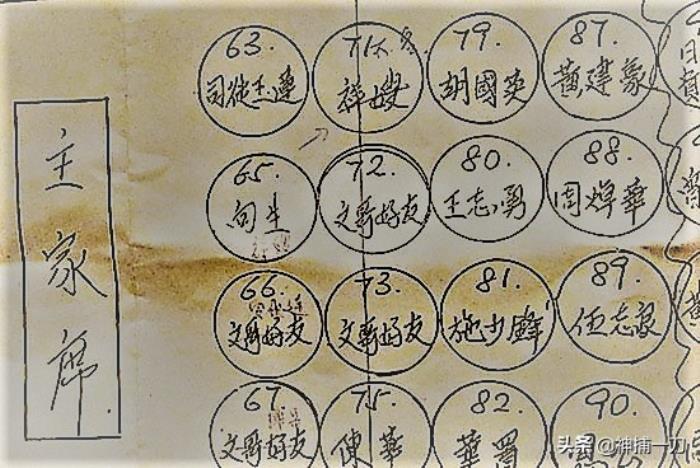 主家席
63.
司徒玉蓮
71
祥嫂
79.
胡國英
87.
黃建豪
65.
向生
72.
文哥好友
80.
王志勇
88.
周焯華
66.
文哥好友
73.
文哥好友
81.
施少鋒
89.
伍志豪
67.
文哥好友
75.
陳華
82.
華
90.
头条@神捕一刀